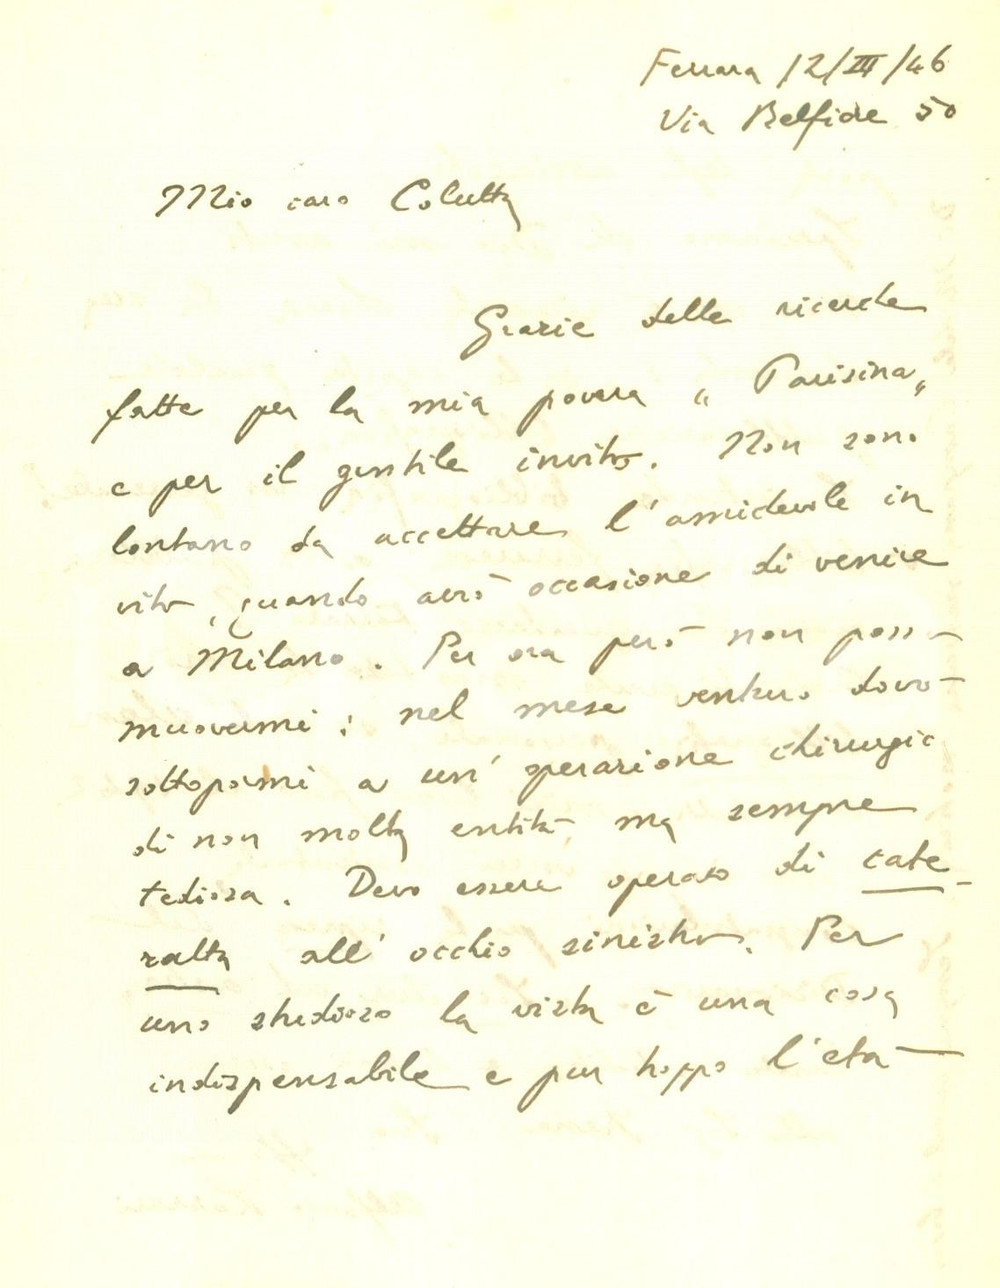 Ferrara 12/III/46
Via Belfiore 50
Mio caro Colutta
Grazie delle ricerche
fatte per la mia povera "Parisina"
e per il gentile invito. Non sono
lontano da accettare l'amichevole in
vito, quando avrò occasione di venire
a Milano. Per ora però non posso
muovermi; nel mese venturo dovrò
sottopormi a un'operazione chirurgic
di non molta entità, ma sempre
tediosa. Devo essere operato di cate-
ratta all'occhio sinistro. Per
uno studioso la vista è una cosa
indispensabile e pur troppo l'età